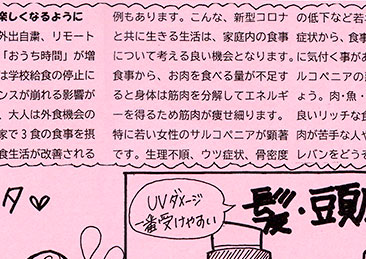 楽しくなるように
外出自粛、リモート
「おうち時間」が増
は学校給食の停止に
ンスが崩れる影響が
、大人は外食機会の
家で3食の食事を摂
食生活が改善される
例もあります。こんな、新型コロナ
と共に生きる生活は、家庭内の食事
について考える良い機会となります。
食事から、お肉を食べる量が不足す
ると身体は筋肉を分解してエネルギ
ーを得るため筋肉が痩せ細ります。
特に若い女性のサルコペニアが顕著
です。生理不順、ウツ症状、骨密度
の低下など若
症状から、食事
に気付く事があ
ルコペニアの
ょう。肉・魚・
良いリッチな食
肉が苦手な人や
レバンをどうぞ
タ♡
UVダメージ
一番受けやすい
髪・頭